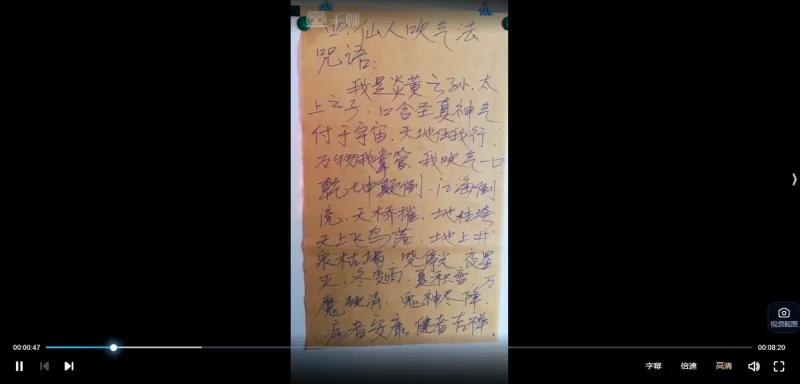 千聊
四.仙人吹气法
咒语:
我是炎黄之孙.太
上之子.口含圣真神气
付于宇宙.天地任我行.
万物我掌管.我吹气一口
乾坤颠倒.江海倒
流.天桥摧.地柱垮
天上飞鸟落.地上井
泉枯竭.晓月光 夜星
灭.冬变雨.夏积雪.万
魔 消.鬼神尽降.
病者安康.健者吉祥.
视频截图
00:00:47
00:08:20
字幕 倍速 高清